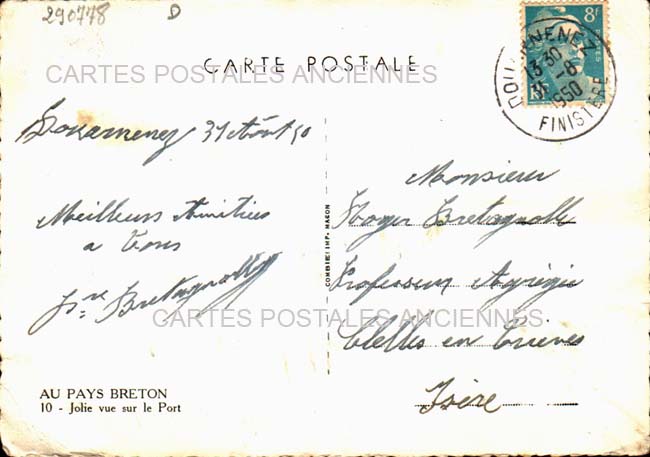 290778 D
8F
CARTE POSTALE
CARTES POSTALES ANCIENNES
DOUARNENEZ
13 30
31 -8
1950
FINISTERE
Douarnenez 31 Août 50
Meilleurs Amitiées
a Tous
Bretagnolle
COMBIER IMP. MACON
Monsieur
Roger Bretagnolle
Professeur Agrégé
Clelles en Trièves
Isère
CARTES POSTALES ANCIENNES
AU PAYS BRETON
10 - Jolie vue sur le Port